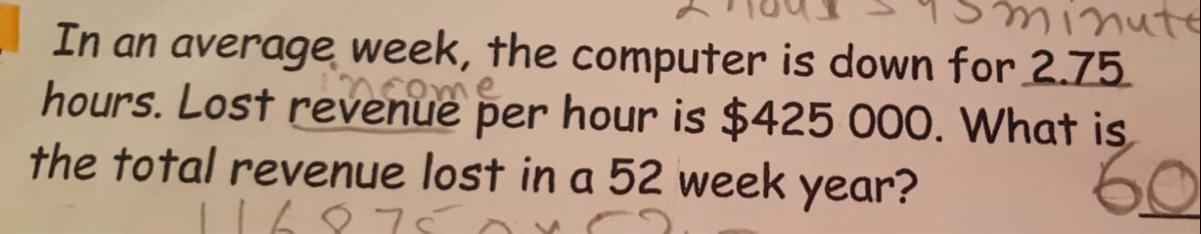 2 hours 45 minute
In an average week, the computer is down for 2.75
income
hours. Lost revenue per hour is $425 000. What is
the total revenue lost in a 52 week year?
60